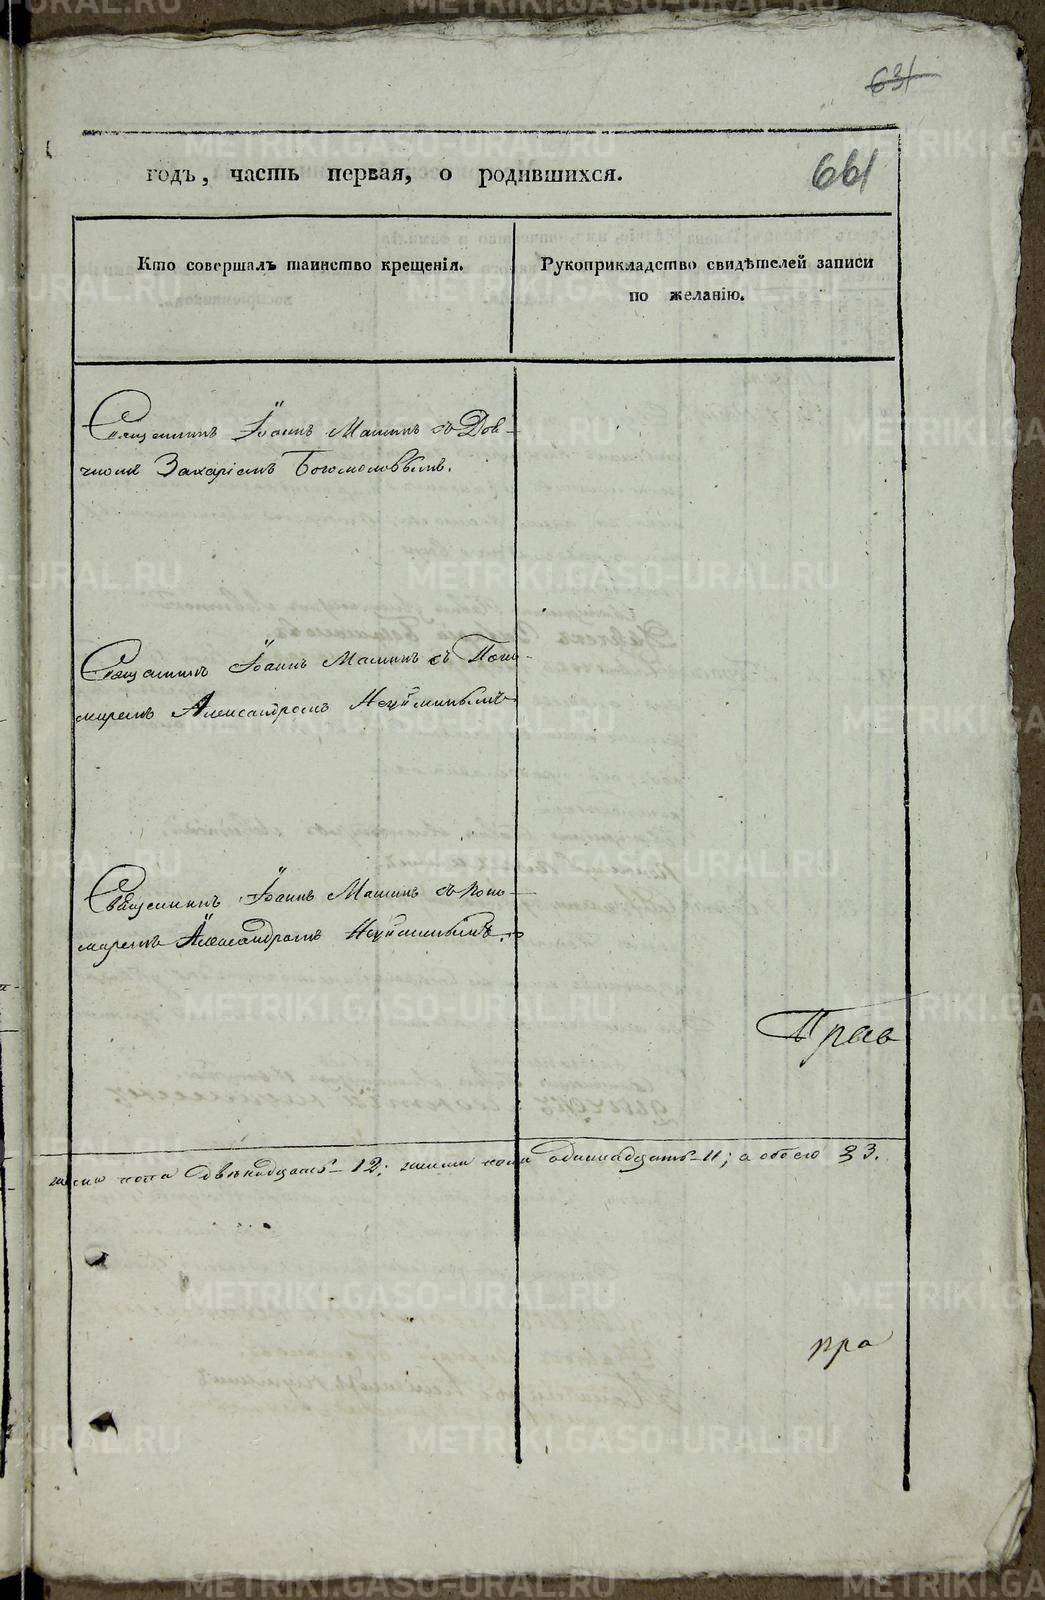 631
661
годъ, часть первая, о родившихся.
Кто совершалъ таинство крещенія.
Рукоприкладство свидѣтелей записи
по желанію.
Священникъ Іоаннъ Машинъ съ Дья-
Захаріемъ Богомоловымъ.
Священникъ Іоаннъ Машинъ съ Поно-
маремъ Александромъ
Священникъ Іоаннъ Машинъ съ поно-
маремъ Александромъ
Прав
пола Двѣнадцать 12; пола одиннадцать 11; а обоего 23.
пра
METRIKI.GASO-URAL.RU